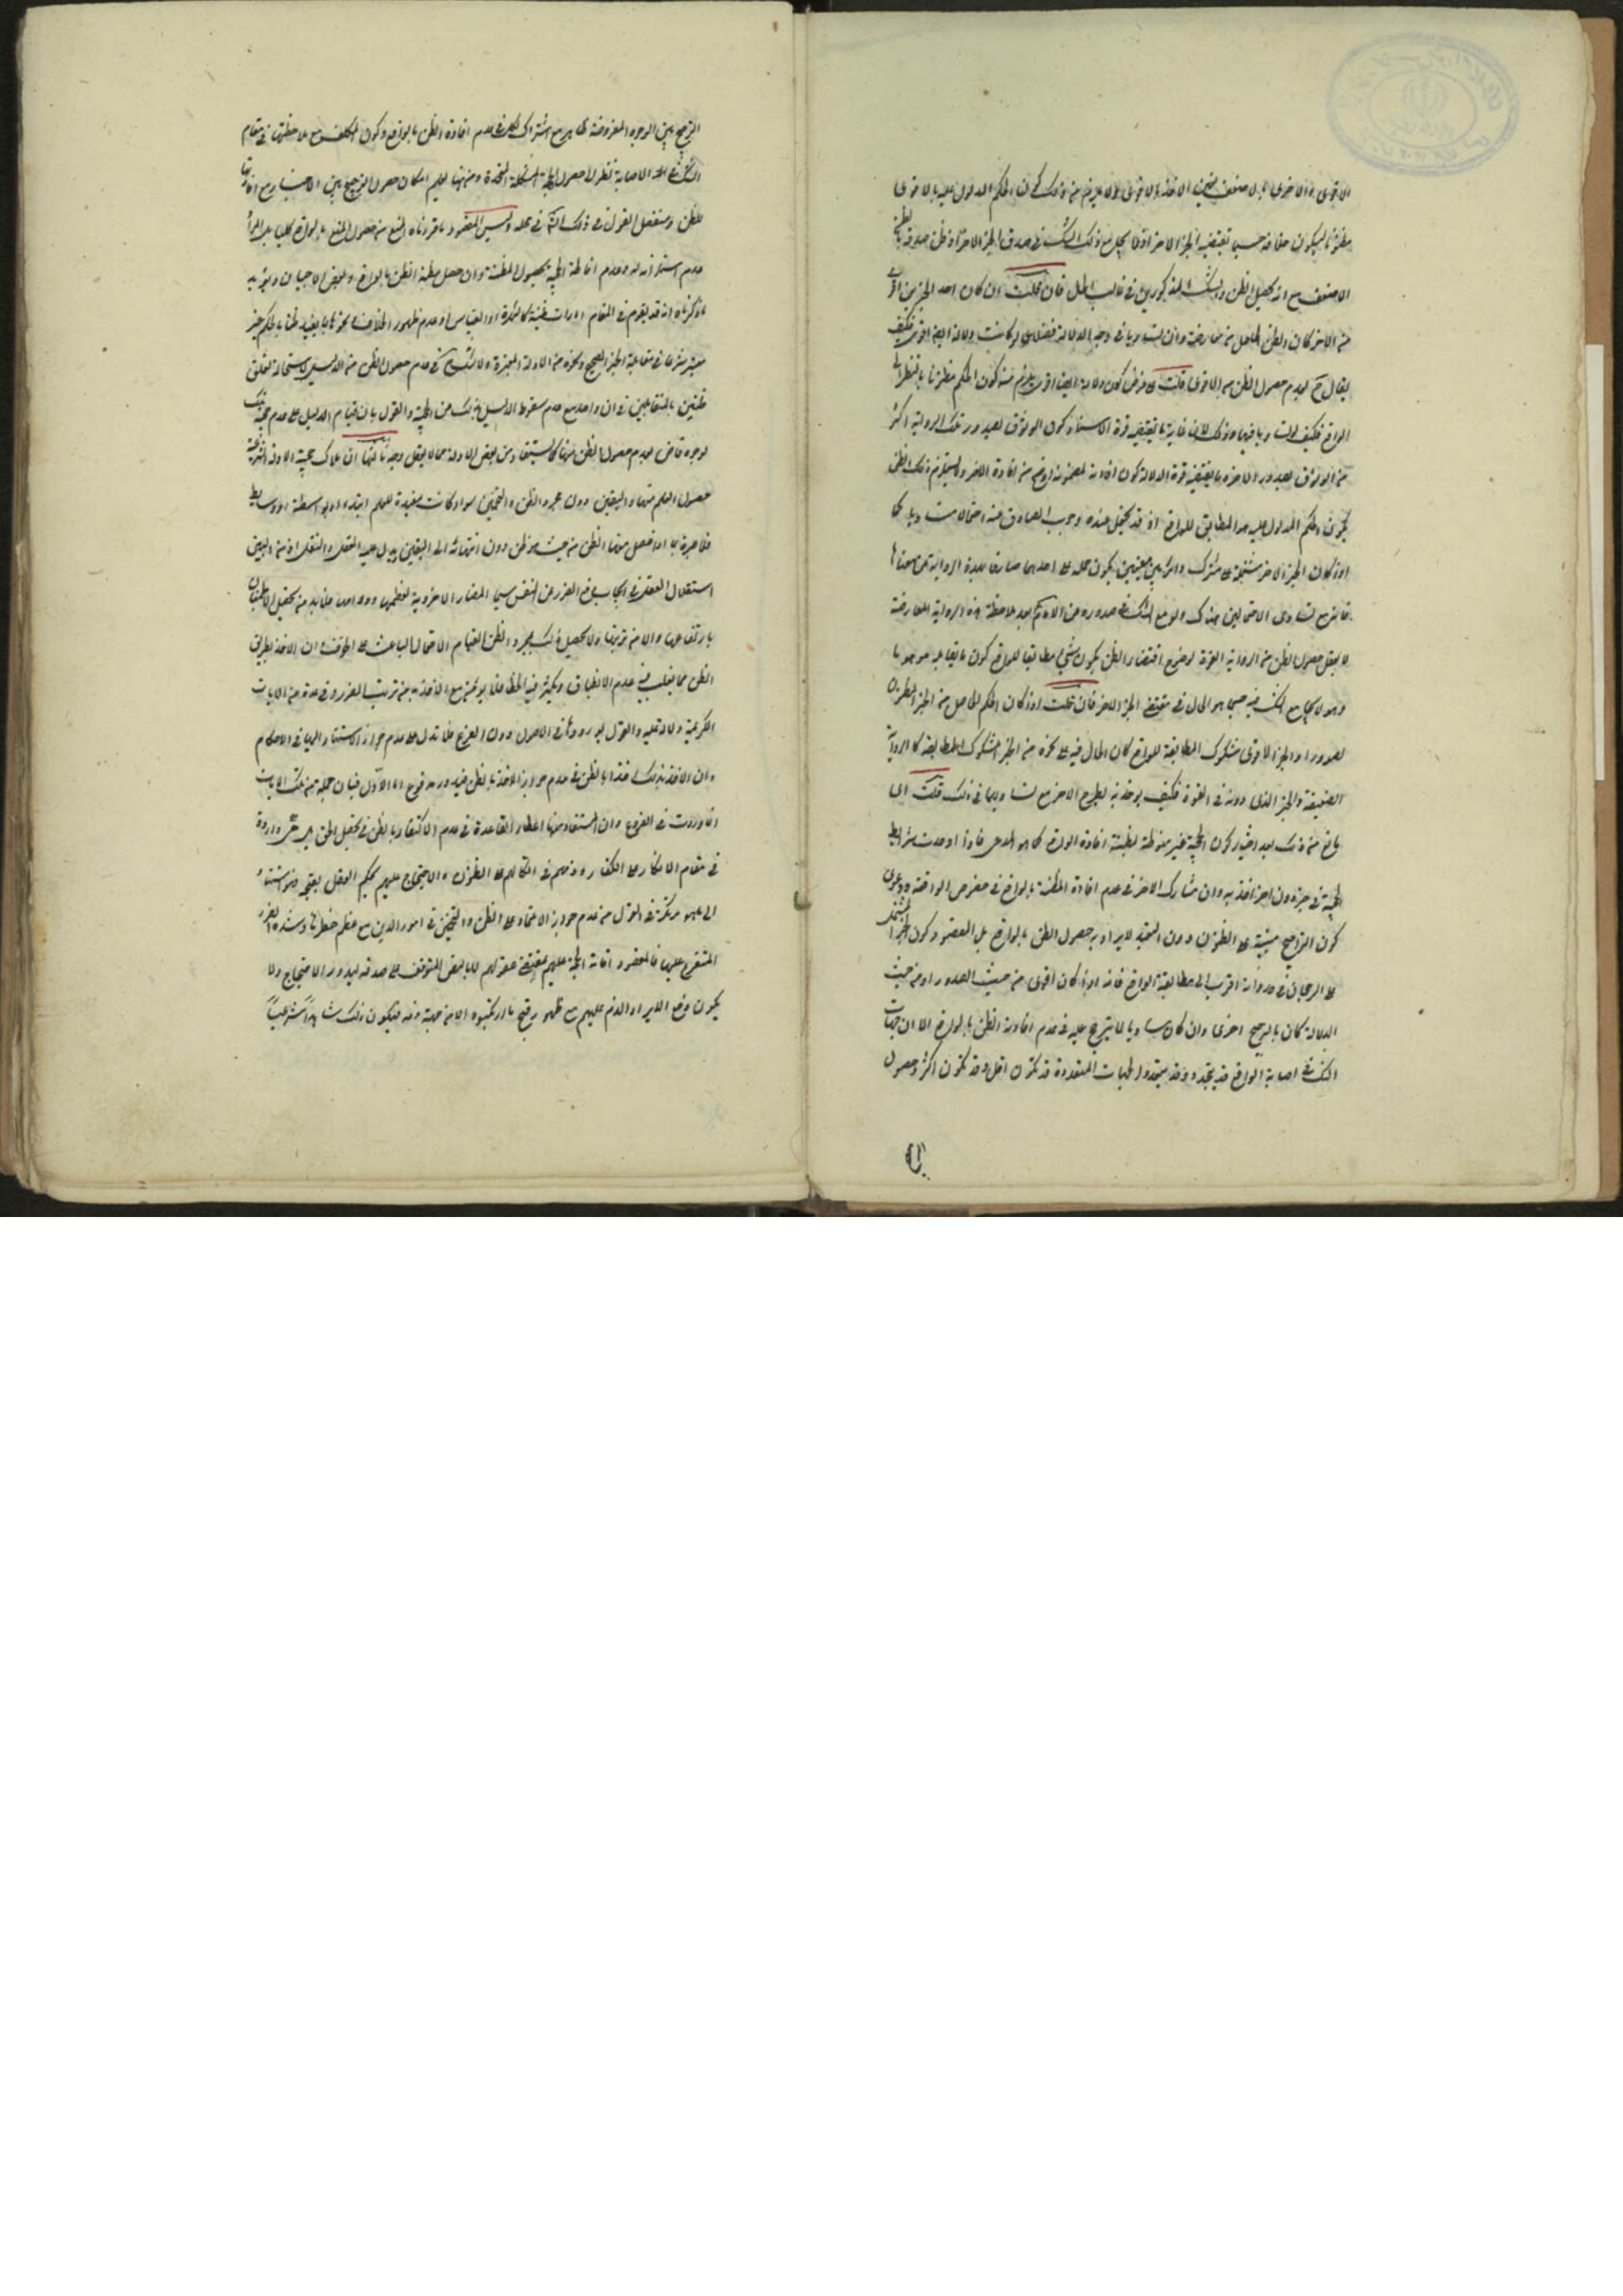 الاقوى والاخرى بالاضعف فيتعين الاخذ بالاقوى ولا يلزم من ذلك كون الحكم المدلول عليه بالاقوى
مظنونا ليكون خلافه حسبما يقتضيه الخبر الاخر اذ لا يجامع ذلك الشك في صدق الخبر الاخر او ظن صدقه بالظن
الاضعف مع انه يحصل الظن والشك المذكورين في غالب الحال فان قلت ان كان احد الخبرين اقوى
من الاخر كان الظن الحاصل من معارضة وان تساويا في وجه الدلالة فضلا عما لو كانت دلالة ايضا اقوى فكيف
يقال ح بعدم حصول الظن من الاقوى قلت على فرض كون دلالته ايضا اقوى يلزم منه كون الحكم مظنونا بالنظر الى
الواقع فكيف لو تساويا فيها وذلك لان غاية ما يقتضيه قوة الاسناد كون الوثوق بصدور تلك الرواية اكثر
من الوثوق بصدور الاخرى وما يقتضيه قوة الدلالة كون افادته لمضمونه اوضح من افادة الاخر ولا يستلزم ذلك الظن
بكون الحكم المدلول عليه هو المطابق للواقع اذ قد يحتمل عنده وجوب الصارف عنه احتمالا مساويا كما
اذا كان الخبر الاخر مشتملا على مشترك دائر بين معنيين يكون حمله على احدهما صارفا لهذه الرواية عن معناها
فانه مع تساوى الاحتمالين هناك والو مع الشك في صدوره عن الامام بعد ملاحظة هذه الرواية المعارضة
لا يعقل حصول الظن من الرواية القوية لوضوح اقتضاء الظن بكون شيء مطابقا للواقع كون ما يقابله موهوما
وهو لا يجامع الشك فيه حسبما هو الحال في مقتضى الخبر الاخر فان قلت اذا كان الحكم الحاصل من الخبر المظنون
الصدور او الخبر الاقوى مشكوك المطابقة للواقع كان الحال فيه على نحوه من الخبر المشكوك المطابقة كالرواية
الضعيفة والخبر الذي دونه في القوة فكيف يوخذ به ويطرح الاخر مع تساويهما في ذلك قلت اى
مانع من ذلك بعد اختيار كون الحجية غير منوطة بمظنة افادة الواقع كما هو المدعى فاذا وجدت شرايط
الحجية في خبر دون اخر اخذ به وان شارك الاخر في عدم افادة المظنة بالواقع في معرض الواقعة ودعوى
كون التراجيح مبنية على الظنون دون التعبد لا يراد به حصول الظن بالواقع بل المقصود كون الخبر المشتمل
على الرجحان في حد ذاته اقرب الى مطابقة الواقع فانه اذا كان اقوى من حيث الصدور او من حيث
الدلالة كان بالترجيح احرى وان كان مساويا لما يترجح عليه في عدم افادته الظن بالواقع الا ان جهات
الشك في اصابة الواقع قد يتحد وقد يتعدد والجهات المتعددة قد تكون اقل وقد تكون اكثر وحصول
الترجيح بين الوجوه المفروضة ظاهر مع اشتراك الكل في عدم افادة الظن بالواقع وكون المكلف مع ملاحظتها في مقام
الشك في الاصابة نظرا الى حصول الجهة المشككة المتحدة ومنها يعلم امكان حصول الترجيح بين الاخبار مع افادتها
للظن وسنفصل القول في ذلك انشاء الله في محله وليس المقصود بما قررناه المنع من حصول المنع بالواقع كليا بل المراد
عدم استلزامه له وعدم اناطة الحجية بحصول المظنة وان حصل منه الظن بالواقع في بعض الاحيان ويؤيده
ما ذكرناه انه قد يقوم في المقام امارات ظنية كالشهرة او القياس او عدم ظهور الخلاف ونحوها بما يفيد ظنا بالحكم غير
معتبر شرعا في مقابلة الخبر الصحيح ونحوه من الادلة المعتبرة ولا شك ح في عدم حصول الظن من الدليل لاستحالة تعلق
ظنين بالمتقابلين في ان واحد مع عدم سقوط الدليل بذلك عن الحجية والقول بان قيام الدليل على عدم حجية تلك
الوجوه قاض بعدم حصول الظن منها كما يستفاد من بعض الاجلة مما لا يعقل وجهه ثالثها ان ملاك حجية الادلة الشرعية
حصول العلم منها واليقين دون مجرد الظن والتخمين سواء كانت مفيدة للعلم ابتداء او بواسطة او وسايط
فلا عبرة بما يحصل منها الظن من حيث هو ظن دون انتهائه الى اليقين ويدل عليه العقل والنقل اذ من البين
استقلال العقل في ايجاب دفع الضرر عن النفس سيما المضار الاخروية لعظمها ودوامها فلا بد من تحصيل الاطمينان
بارتفاعها والامن من ترتبها ولا يحصل ذلك بمجرد الظن لقيام الاحتمال الباعث على الخوف وان الاخذ بطريق
الظن مما يغلب فيه عدم الانطباق ويكثر فيه الخطأ فلا يؤمن مع الاخذ به من ترتب الضرر وفي عدة من الايات
الكريمة دلالة عليه والقول بورودها في الاصول دون الفروع فلا تدل على عدم جواز الاستناد اليها في الاحكام
وان الاخذ بذلك اخذ بالظن في عدم جواز الاخذ بالظن فيدور مدفوع اما الاول فبان جملة من تلك الايات
انما وردت في الفروع وان المستفاد منها اعطاء القاعدة في عدم الاكتفاء بالظن في تحصيل الحق واردة
في مقام الانكار على الكفار وذمهم في اتكالهم على الظنون والاحتجاج عليهم بحكم العقل بقبحه استنادا
الى ما هو مركوز في العقول من عدم جواز الاعتماد على الظن والتخمين في امور الدين مع عظم خطرها وشدة الضرر
المتفرع عليها فالمقصود اقامة الحجة عليهم بمقتضى عقولهم لا بالنص المتوقف على صدقه ليدور الاحتجاج ولا
يكون وقع الايراد والذم عليهم مع ظهور قبح ما ارتكبوه الا من جهته فيكون ذلك شاهدا شرعيا